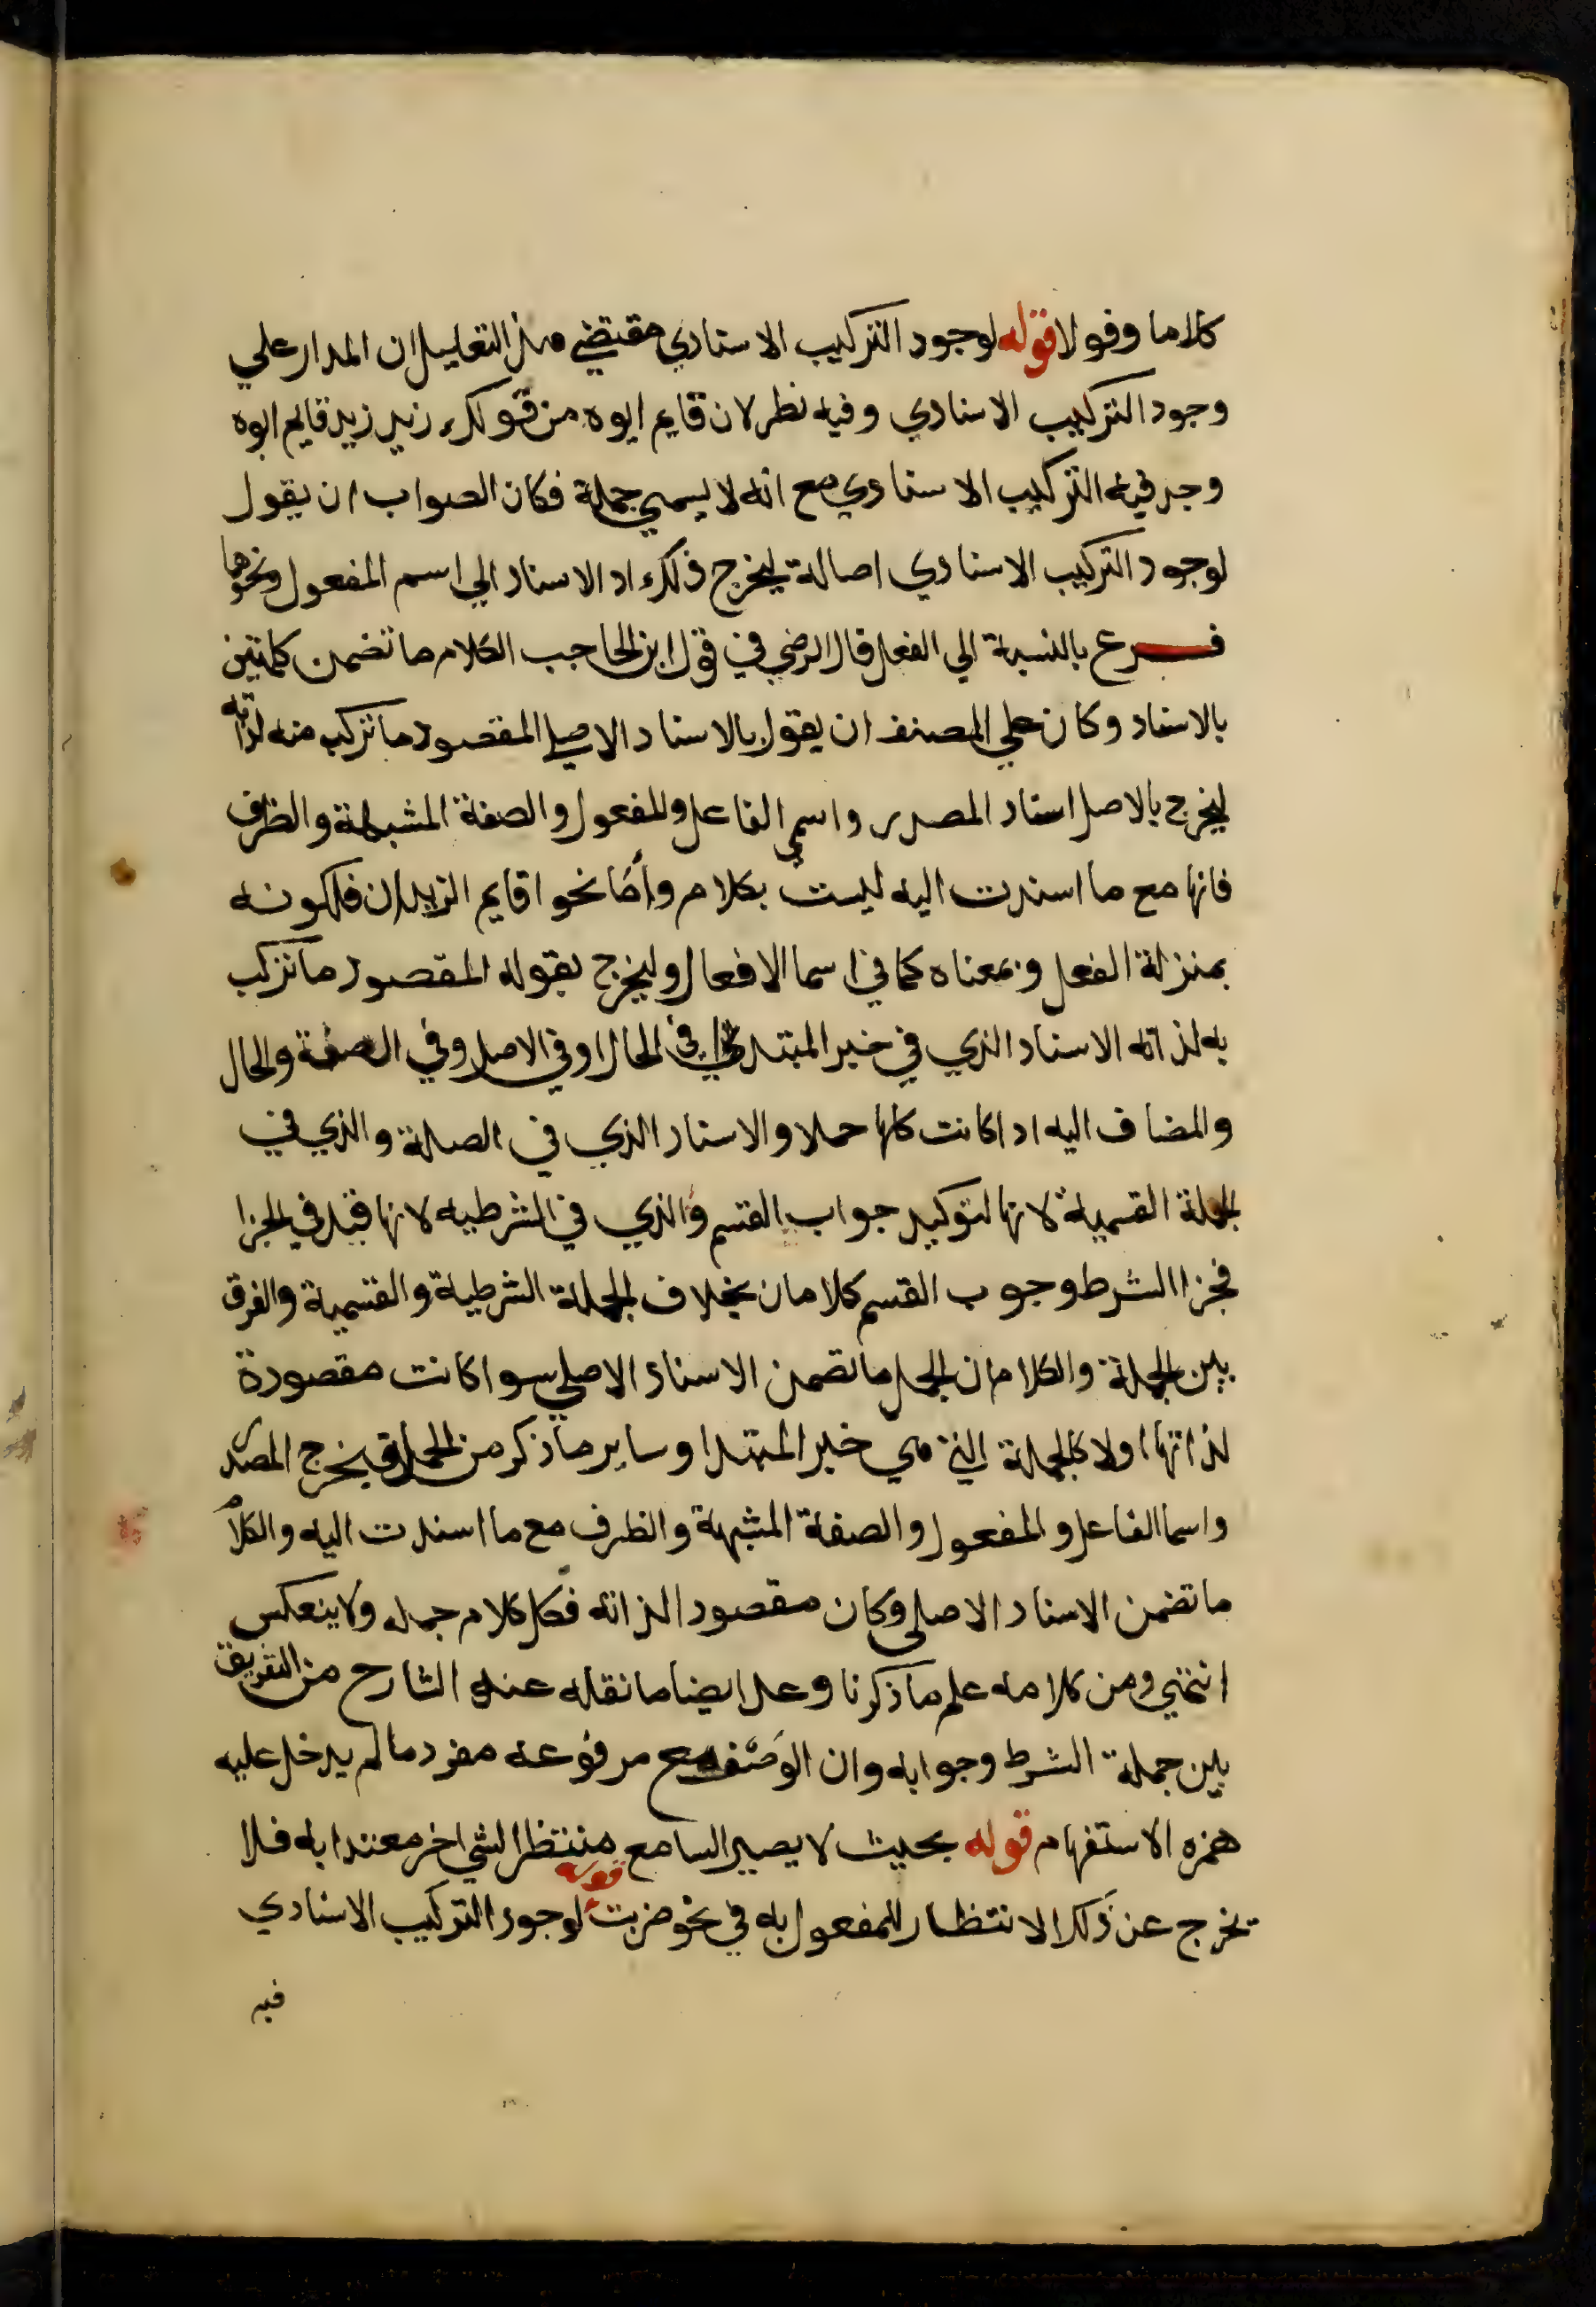 كلاما وقولا قوله لوجود التركيب الاسنادي مقتضي هذا التعليل ان المدار علي
وجود التركيب الاسنادي وفيه نظر لان قايم ابوه من قولك زيد قايم ابوه
وجد فيه التركيب الاسنادي مع انه لا يسمي جملة فكان الصواب ان يقول
لوجود التركيب الاسنادي اصالة ليخرج ذلك اد الاسناد الي اسم المفعول ونحوهما
فرع بالنسبة الي الفعل قال الرضي في قول ابن الحاجب الكلام ما تضمن كلمتين
بالاسناد وكان علي المصنف ان يقول بالاسناد الاصلي المقصود ما تركب منه لذاته
ليخرج بالاصل اسناد المصدر واسمي الفاعل والمفعول والصفة المشبهة والظرف
فانها مع ما اسندت اليه ليست بكلام واما نحو اقايم الزيدان فلكونه
بمنزلة الفعل وبمعناه كما في اسما الافعال وليخرج بقوله المقصود ما تركب
به لذاته الاسناد الذي في خبر المبتدا في الحال او في الاصل وفي الصفة والحال
والمضاف اليه اد اكانت كلها جملا والاسناد الذي في الصلة والذي في
الجملة القسمية لانها لتوكيد جواب القسم والذي في الشرطيه لانها قيد في الجزا
فجزا الشرط وجوب القسم كلامان بخلاف الجملة الشرطية والقسمية والفرق
بين الجملة والكلام ان الجمل ما تضمن الاسناد الاصلي سوا كانت مقصودة
لذاتها اولا كالجملة التي هي خبر المبتدا وساير ما ذكر من الجمل فيخرج المصدر
واسما الفاعل والمفعول والصفة المشبهة والظرف مع ما اسندت اليه والكلام
ما تضمن الاسناد الاصلي وكان مقصودا لذاته فكل كلام جمله ولا ينعكس
انتهي ومن كلامه علم ما ذكرنا وعلم ايضا ما نقله عنه الشارح من التفريق
بين جملة الشرط وجوابه وان الوصف مع مرفوعه مفرد ما لم يدخل عليه
همزه الاستفهام قوله بحيث لا يصير السامع منتظرا لشي اخر معتدا به فلا
يخرج عن ذلك الانتظار للمفعول به في نحو ضربت قوله لوجود التركيب الاسنادي
فيه